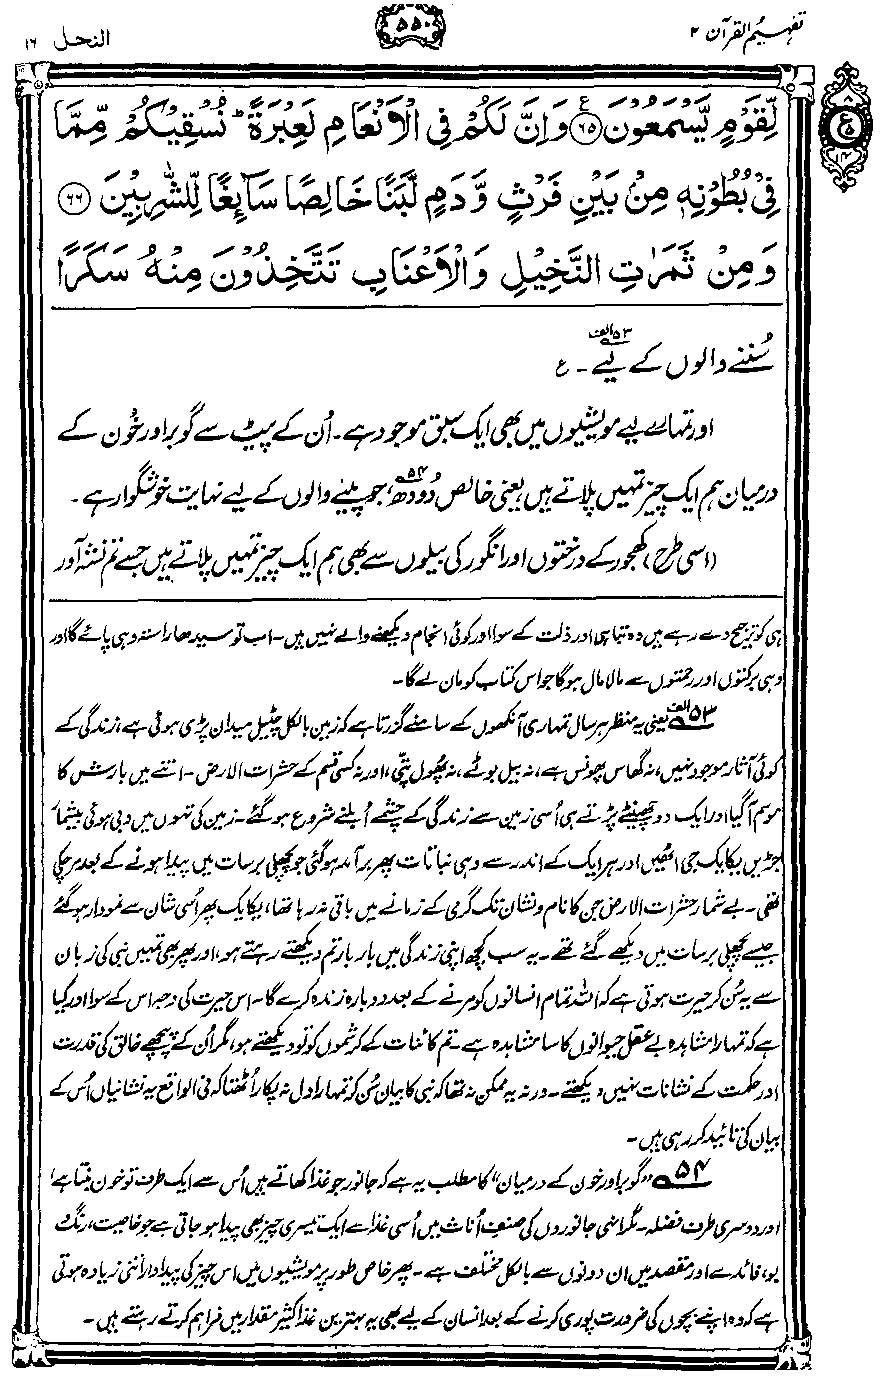 تفہیم القرآن ۲
۵۵۰
النحل ۱۶
لِّقَوْمٍ يَّسْمَعُوْنَ ۝۶۵ ع وَاِنَّ لَكُمْ فِى الْاَنْعَامِ لَعِبْرَةً ؕ نُسْقِيْكُمْ مِّمَّا
فِىْ بُطُوْنِهٖ مِنْۢ بَيْنِ فَرْثٍ وَّدَمٍ لَّبَنًا خَالِصًا سَآئِغًا لِّلشّٰرِبِيْنَ ۝۶۶
وَمِنْ ثَمَرٰتِ النَّخِيْلِ وَالْاَعْنَابِ تَتَّخِذُوْنَ مِنْهُ سَكَرًا
سُننے والوں کے لیے۵۳الف۔ ع
اور تمہارے لیے مویشیوں میں بھی ایک سبق موجود ہے۔ اُن کے پیٹ سے گوبر اور خُون کے
درمیان ہم ایک چیز تمہیں پلاتے ہیں، یعنی خالص دُودھ۵۴، جو پینے والوں کے لیے نہایت خوشگوار ہے۔
(اسی طرح) کھجور کے درختوں اور انگور کی بیلوں سے بھی ہم ایک چیز تمہیں پلاتے ہیں جسے تم نشہ آور
ہی کو ترجیح دے رہے ہیں وہ تباہی اور ذلت کے سوا اور کوئی انجام دیکھنے والے نہیں ہیں۔ اب تو سیدھا راستہ وہی پائے گا اور
وہی برکتوں اور رحمتوں سے مالا مال ہوگا جو اس کتاب کو مان لے گا۔
۵۳الف یعنی یہ منظر ہر سال تمہاری آنکھوں کے سامنے گزرتا ہے کہ زمین بالکل چٹیل میدان پڑی ہوئی ہے، زندگی کے
کوئی آثار موجود نہیں، نہ گھاس پھونس ہے، نہ بیل بوٹے، نہ پھول پتی، اور نہ کسی قسم کے حشرات الارض۔ اتنے میں بارش کا
موسم آگیا اور ایک دو چھینٹے پڑتے ہی اُسی زمین سے زندگی کے چشمے اُبلنے شروع ہوگئے۔ زمین کی تہوں میں دبی ہوئی بیشمار
جڑیں یکایک جی اٹھیں اور ہر ایک کے اندر سے وہی نباتات پھر برآمد ہوگئی جو پچھلی برسات میں پیدا ہونے کے بعد مرچکی
تھی۔ بے شمار حشرات الارض جن کا نام و نشان تک گرمی کے زمانے میں باقی نہ رہا تھا، یکایک پھر اُسی شان سے نمودار ہوگئے
جیسے پچھلی برسات میں دیکھے گئے تھے۔ یہ سب کچھ اپنی زندگی میں بار بار تم دیکھتے رہتے ہو، اور پھر بھی تمہیں نبی کی زبان
سے یہ سُن کر حیرت ہوتی ہے کہ اللہ تمام انسانوں کو مرنے کے بعد دوبارہ زندہ کرے گا۔ اس حیرت کی وجہ اس کے سوا اور کیا
ہے کہ تمہارا مشاہدہ بے عقل حیوانوں کا سا مشاہدہ ہے۔ تم کائنات کے کرشموں کو تو دیکھتے ہو، مگر اُن کے پیچھے خالق کی قدرت
اور حکمت کے نشانات نہیں دیکھتے۔ ورنہ یہ ممکن نہ تھا کہ نبی کا بیان سُن کر تمہارا دل نہ پکار اُٹھتا کہ فی الواقع یہ نشانیاں اُس کے
بیان کی تائید کر رہی ہیں۔
۵۴ ”گوبر اور خون کے درمیان“ کا مطلب یہ ہے کہ جانور جو غذا کھاتے ہیں اُس سے ایک طرف تو خون بنتا ہے،
اور دوسری طرف فضلہ۔ مگر انہی جانوروں کی صنفِ اُناث میں اُسی غذا سے ایک تیسری چیز بھی پیدا ہو جاتی ہے جو خاصیت، رنگ
بو، فائدے اور مقصد میں ان دونوں سے بالکل مختلف ہے۔ پھر خاص طور پر مویشیوں میں اس چیز کی پیداوار اتنی زیادہ ہوتی
ہے کہ وہ اپنے بچوں کی ضرورت پوری کرنے کے بعد انسان کے لیے بھی یہ بہترین غذا کثیر مقدار میں فراہم کرتے رہتے ہیں۔